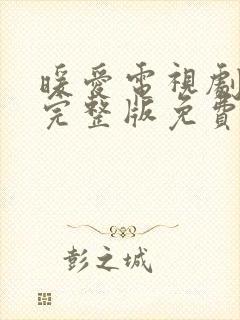 暖愛電視劇
完整版免費
彭之城